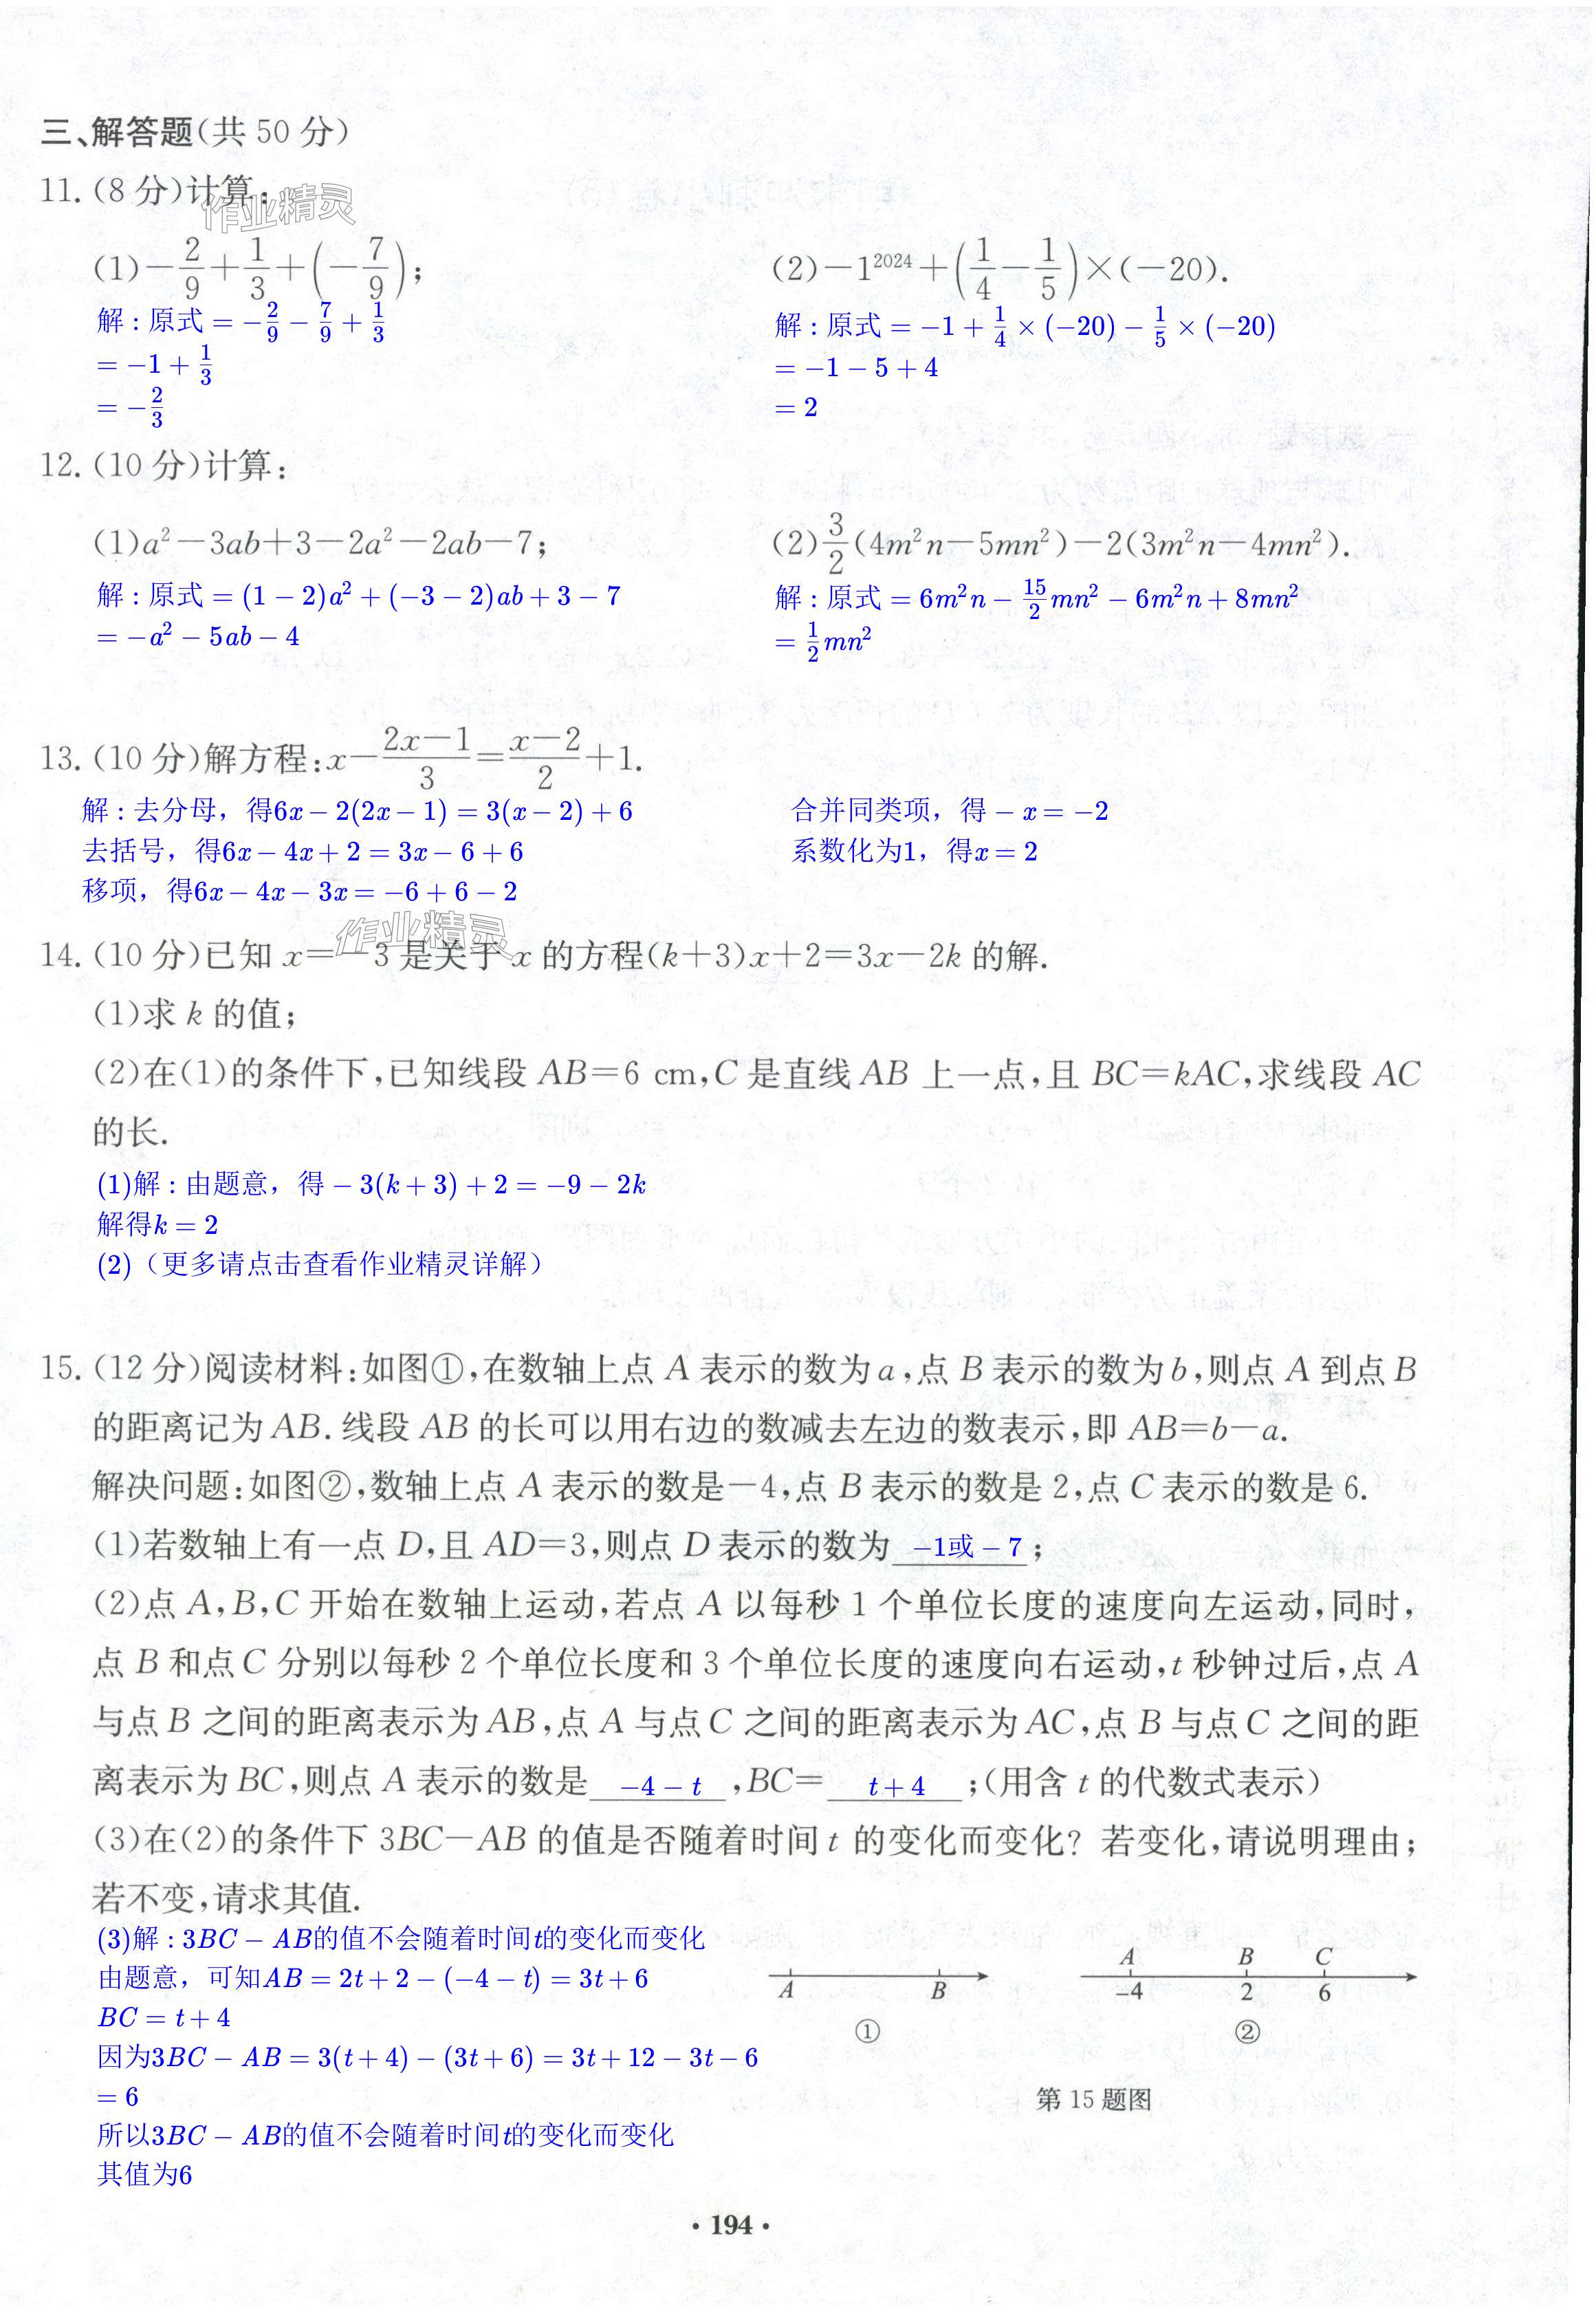 三、解答题(共 50 分)
11. (8 分)计算:
作业精灵
(1)−2/9+1/3+(−7/9);
(2)−1²⁰²⁴+(1/4−1/5)×(−20).
解:原式 = −2/9 − 7/9 + 1/3
= −1 + 1/3
= −2/3
解:原式 = −1 + 1/4 × (−20) − 1/5 × (−20)
= −1 − 5 + 4
= 2
12. (10 分)计算:
(1)a²−3ab+3−2a²−2ab−7;
(2)3/2(4m²n−5mn²)−2(3m²n−4mn²).
解:原式 = (1 − 2)a² + (−3 − 2)ab + 3 − 7
= −a² − 5ab − 4
解:原式 = 6m²n − 15/2mn² − 6m²n + 8mn²
= 1/2mn²
13. (10 分)解方程:x−(2x−1)/3=(x−2)/2+1.
解:去分母，得6x − 2(2x − 1) = 3(x − 2) + 6
去括号，得6x − 4x + 2 = 3x − 6 + 6
移项，得6x − 4x − 3x = −6 + 6 − 2
合并同类项，得 − x = −2
系数化为1，得x = 2
作业精灵
14. (10 分)已知 x=−3 是关于 x 的方程(k+3)x+2=3x−2k 的解.
(1)求 k 的值;
(2)在(1)的条件下,已知线段 AB=6 cm,C 是直线 AB 上一点,且 BC=kAC,求线段 AC
的长.
(1)解:由题意，得 − 3(k + 3) + 2 = −9 − 2k
解得k = 2
(2)（更多请点击查看作业精灵详解）
15. (12 分)阅读材料:如图①,在数轴上点 A 表示的数为 a,点 B 表示的数为 b,则点 A 到点 B
的距离记为 AB. 线段 AB 的长可以用右边的数减去左边的数表示,即 AB=b−a.
解决问题:如图②,数轴上点 A 表示的数是−4,点 B 表示的数是 2,点 C 表示的数是 6.
(1)若数轴上有一点 D,且 AD=3,则点 D 表示的数为 −1或 − 7 ;
(2)点 A,B,C 开始在数轴上运动,若点 A 以每秒 1 个单位长度的速度向左运动,同时,
点 B 和点 C 分别以每秒 2 个单位长度和 3 个单位长度的速度向右运动,t 秒钟过后,点 A
与点 B 之间的距离表示为 AB,点 A 与点 C 之间的距离表示为 AC,点 B 与点 C 之间的距
离表示为 BC,则点 A 表示的数是 −4 − t ,BC= t + 4 ;(用含 t 的代数式表示)
(3)在(2)的条件下 3BC−AB 的值是否随着时间 t 的变化而变化? 若变化,请说明理由;
若不变,请求其值.
(3)解:3BC − AB的值不会随着时间t的变化而变化
由题意，可知AB = 2t + 2 − (−4 − t) = 3t + 6
BC = t + 4
因为3BC − AB = 3(t + 4) − (3t + 6) = 3t + 12 − 3t − 6
= 6
所以3BC − AB的值不会随着时间t的变化而变化
其值为6
A B
①
A B C
−4 2 6
②
第 15 题图
· 194 ·